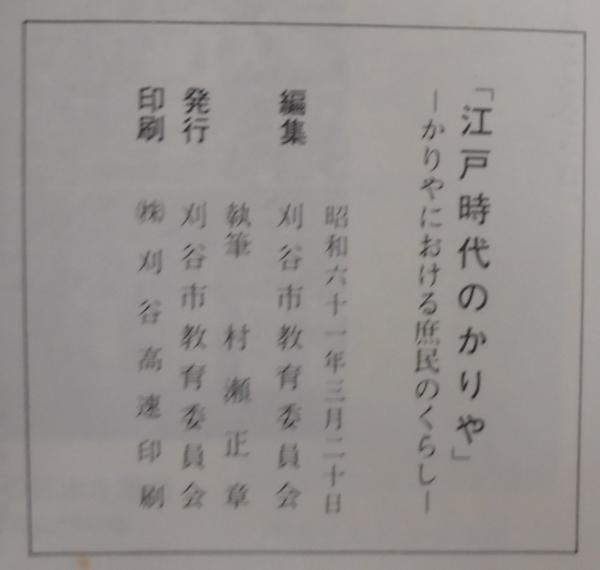 「江戸時代のかりや」
―かりやにおける庶民のくらし―
昭和六十一年三月二十日
編集 刈谷市教育委員会
執筆 村瀬正章
発行 刈谷市教育委員会
印刷 ㈱刈谷高速印刷